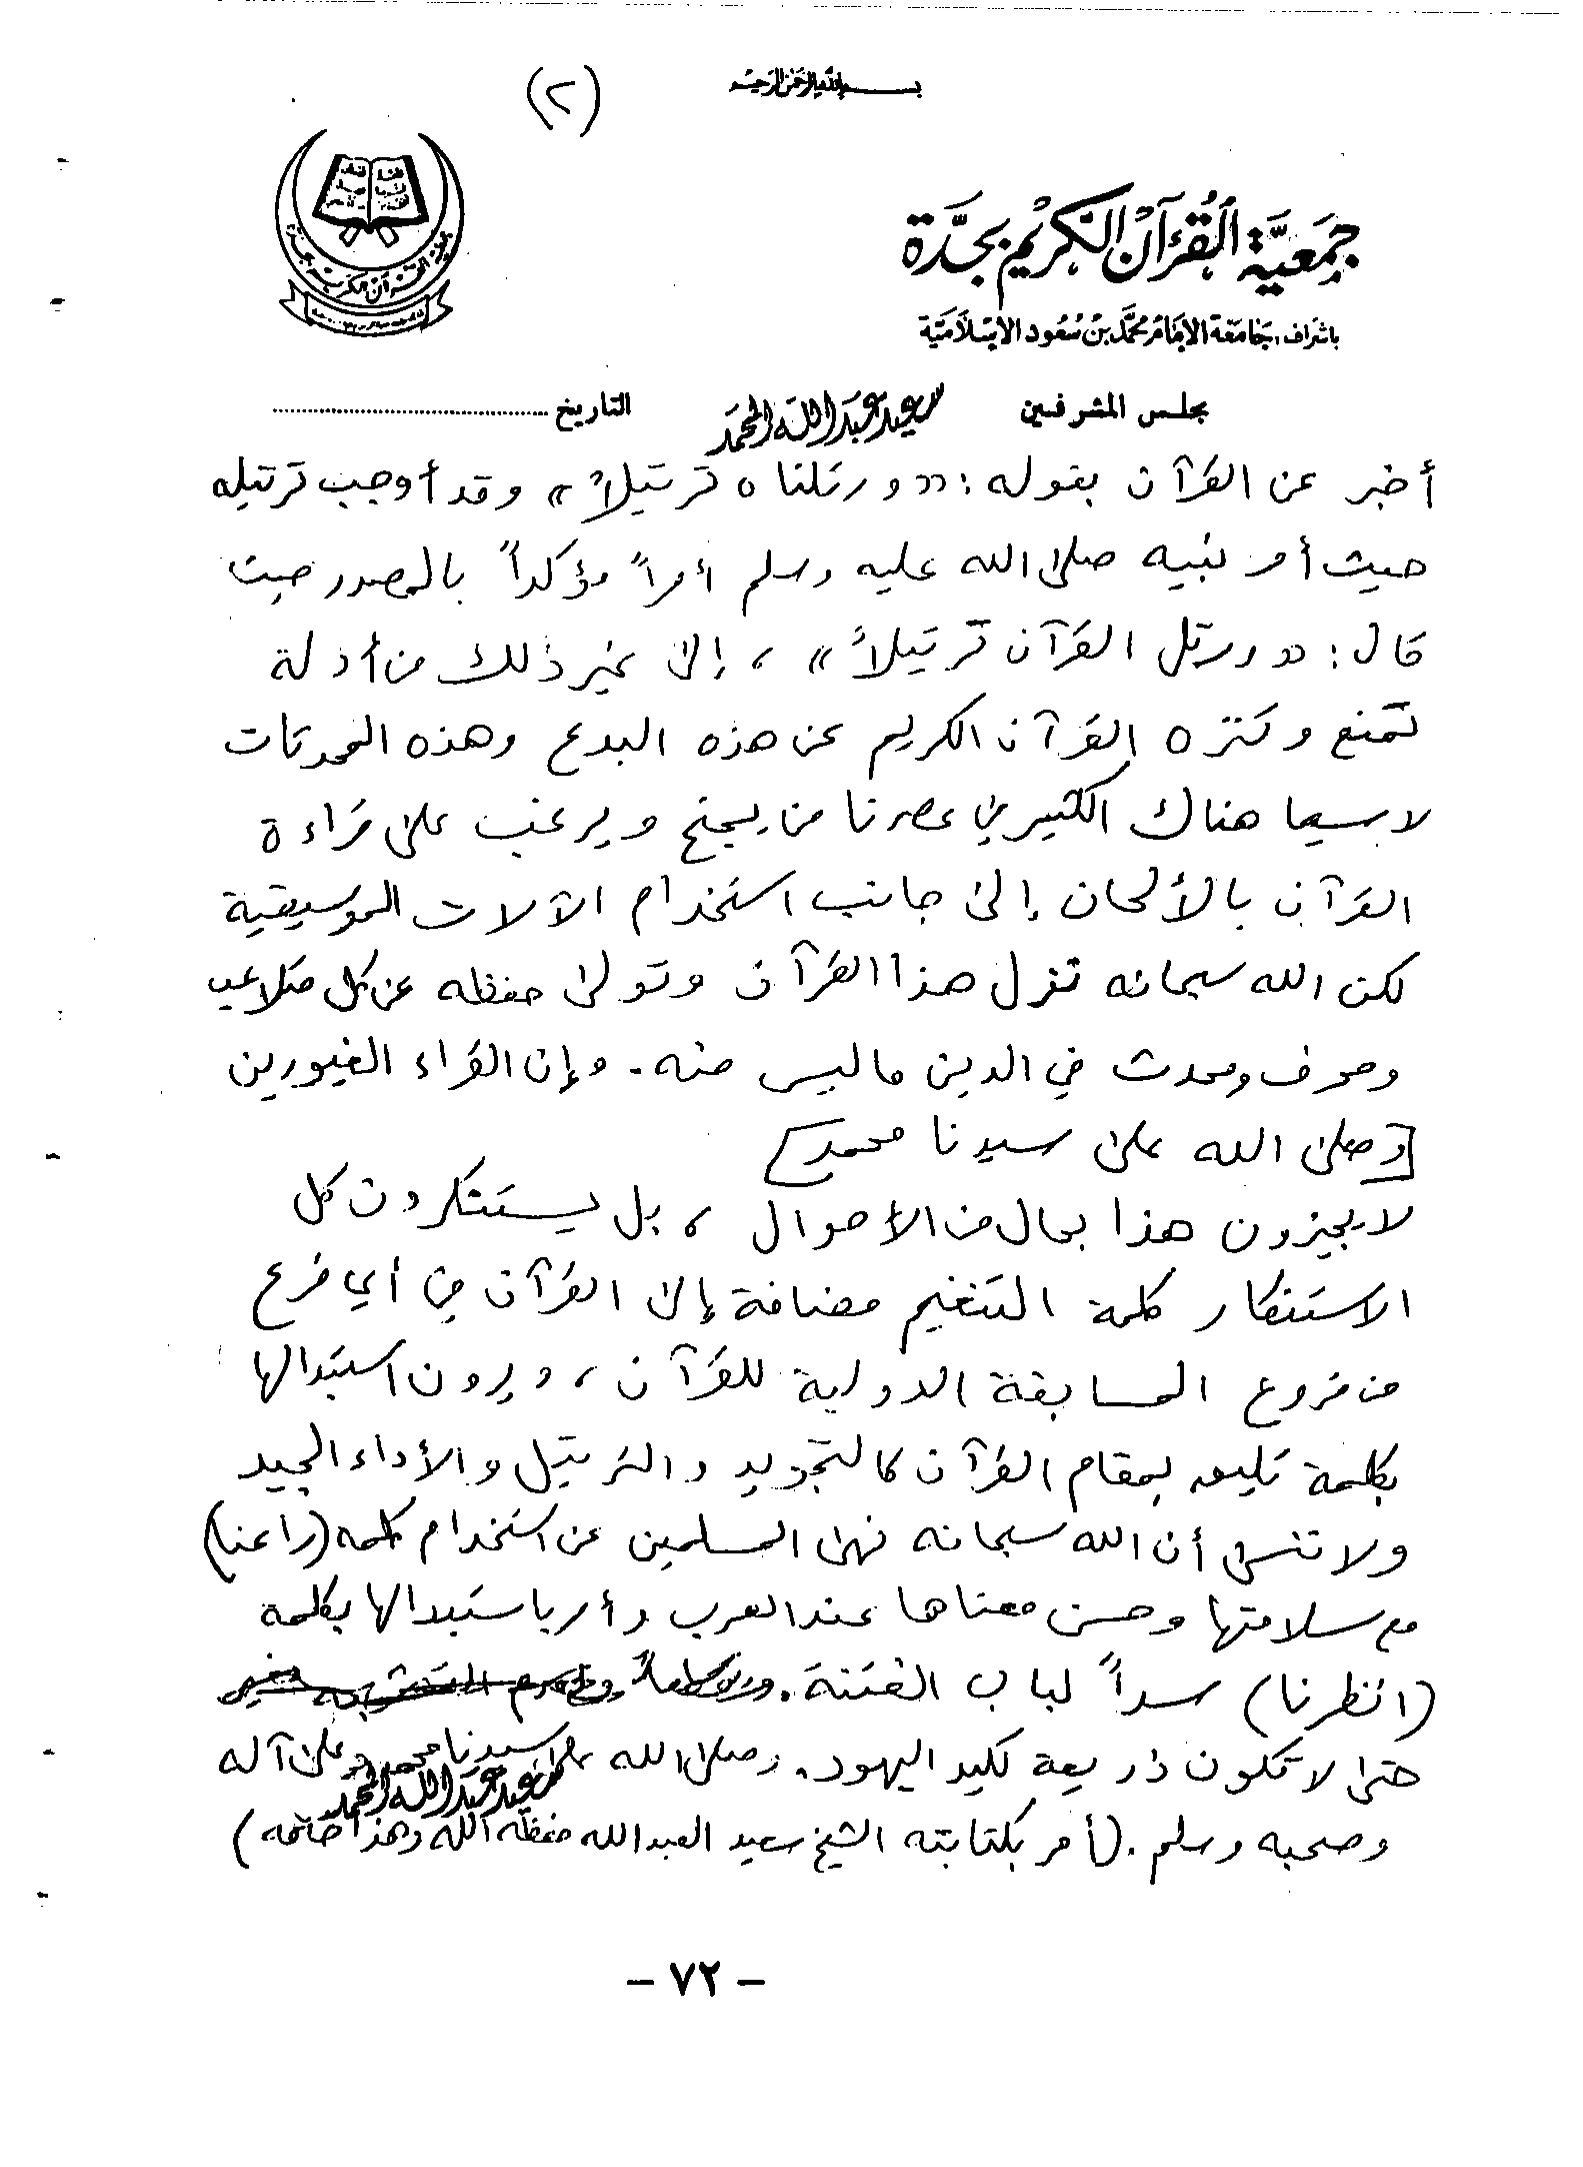 بسم الله الرحمن الرحيم
(٢)
جمعية القرآن الكريم بجدة
باشراف، جامعة الإمام محمد بن سعود الإسلامية
مجلس المشرفين
سعيد عبد الله المحمد
التاريخ ........................
أخبر عن القرآن بقوله : «ورتلناه ترتيلاً» وقد أوجب ترتيله
حيث أمر نبيه صلى الله عليه وسلم أمراً مؤكداً بالمصدر حيث
قال : «ورتل القرآن ترتيلاً» ، إلى غير ذلك من أدلة
تمنع وتنزه القرآن الكريم عن هذه البدع وهذه المحدثات
لا سيما هناك الكثير في عصرنا من يجنح ويرغب على قراءة
القرآن بالألحان إلى جانب استخدام الآلات الموسيقية
لكن الله سبحانه تنزل هذا القرآن وتولى حفظه عن كل متلاعب
ومحرف ومحدث في الدين ما ليس منه . وإن القراء الغيورين
[وصلى الله على سيدنا محمد]
لا يجيزون هذا بحال من الأحوال ، بل يستنكرون كل
الاستنكار كلمة التنغيم مضافة إلى القرآن في أي فرع
من فروع المسابقة الدولية للقرآن ، ويرون استبدالها
بكلمة تليق بمقام القرآن كالتجويد والترتيل والأداء الجيد
ولا تنسى أن الله سبحانه نهى المسلمين عن استخدام كلمة (راعنا)
مع سلامتها وحسن معناها عند العرب وأمر باستبدالها بكلمة
(انظرنا) سداً لباب الفتنة .
حتى لا تكون ذريعة لكيد اليهود . وصلى الله على سيدنا محمد وعلى آله
سعيد عبد الله المحمد
وصحبه وسلم . (أمر بكتابته الشيخ سعيد العبدالله حفظه الله وهذا خاتمه)
- ٧٢ -